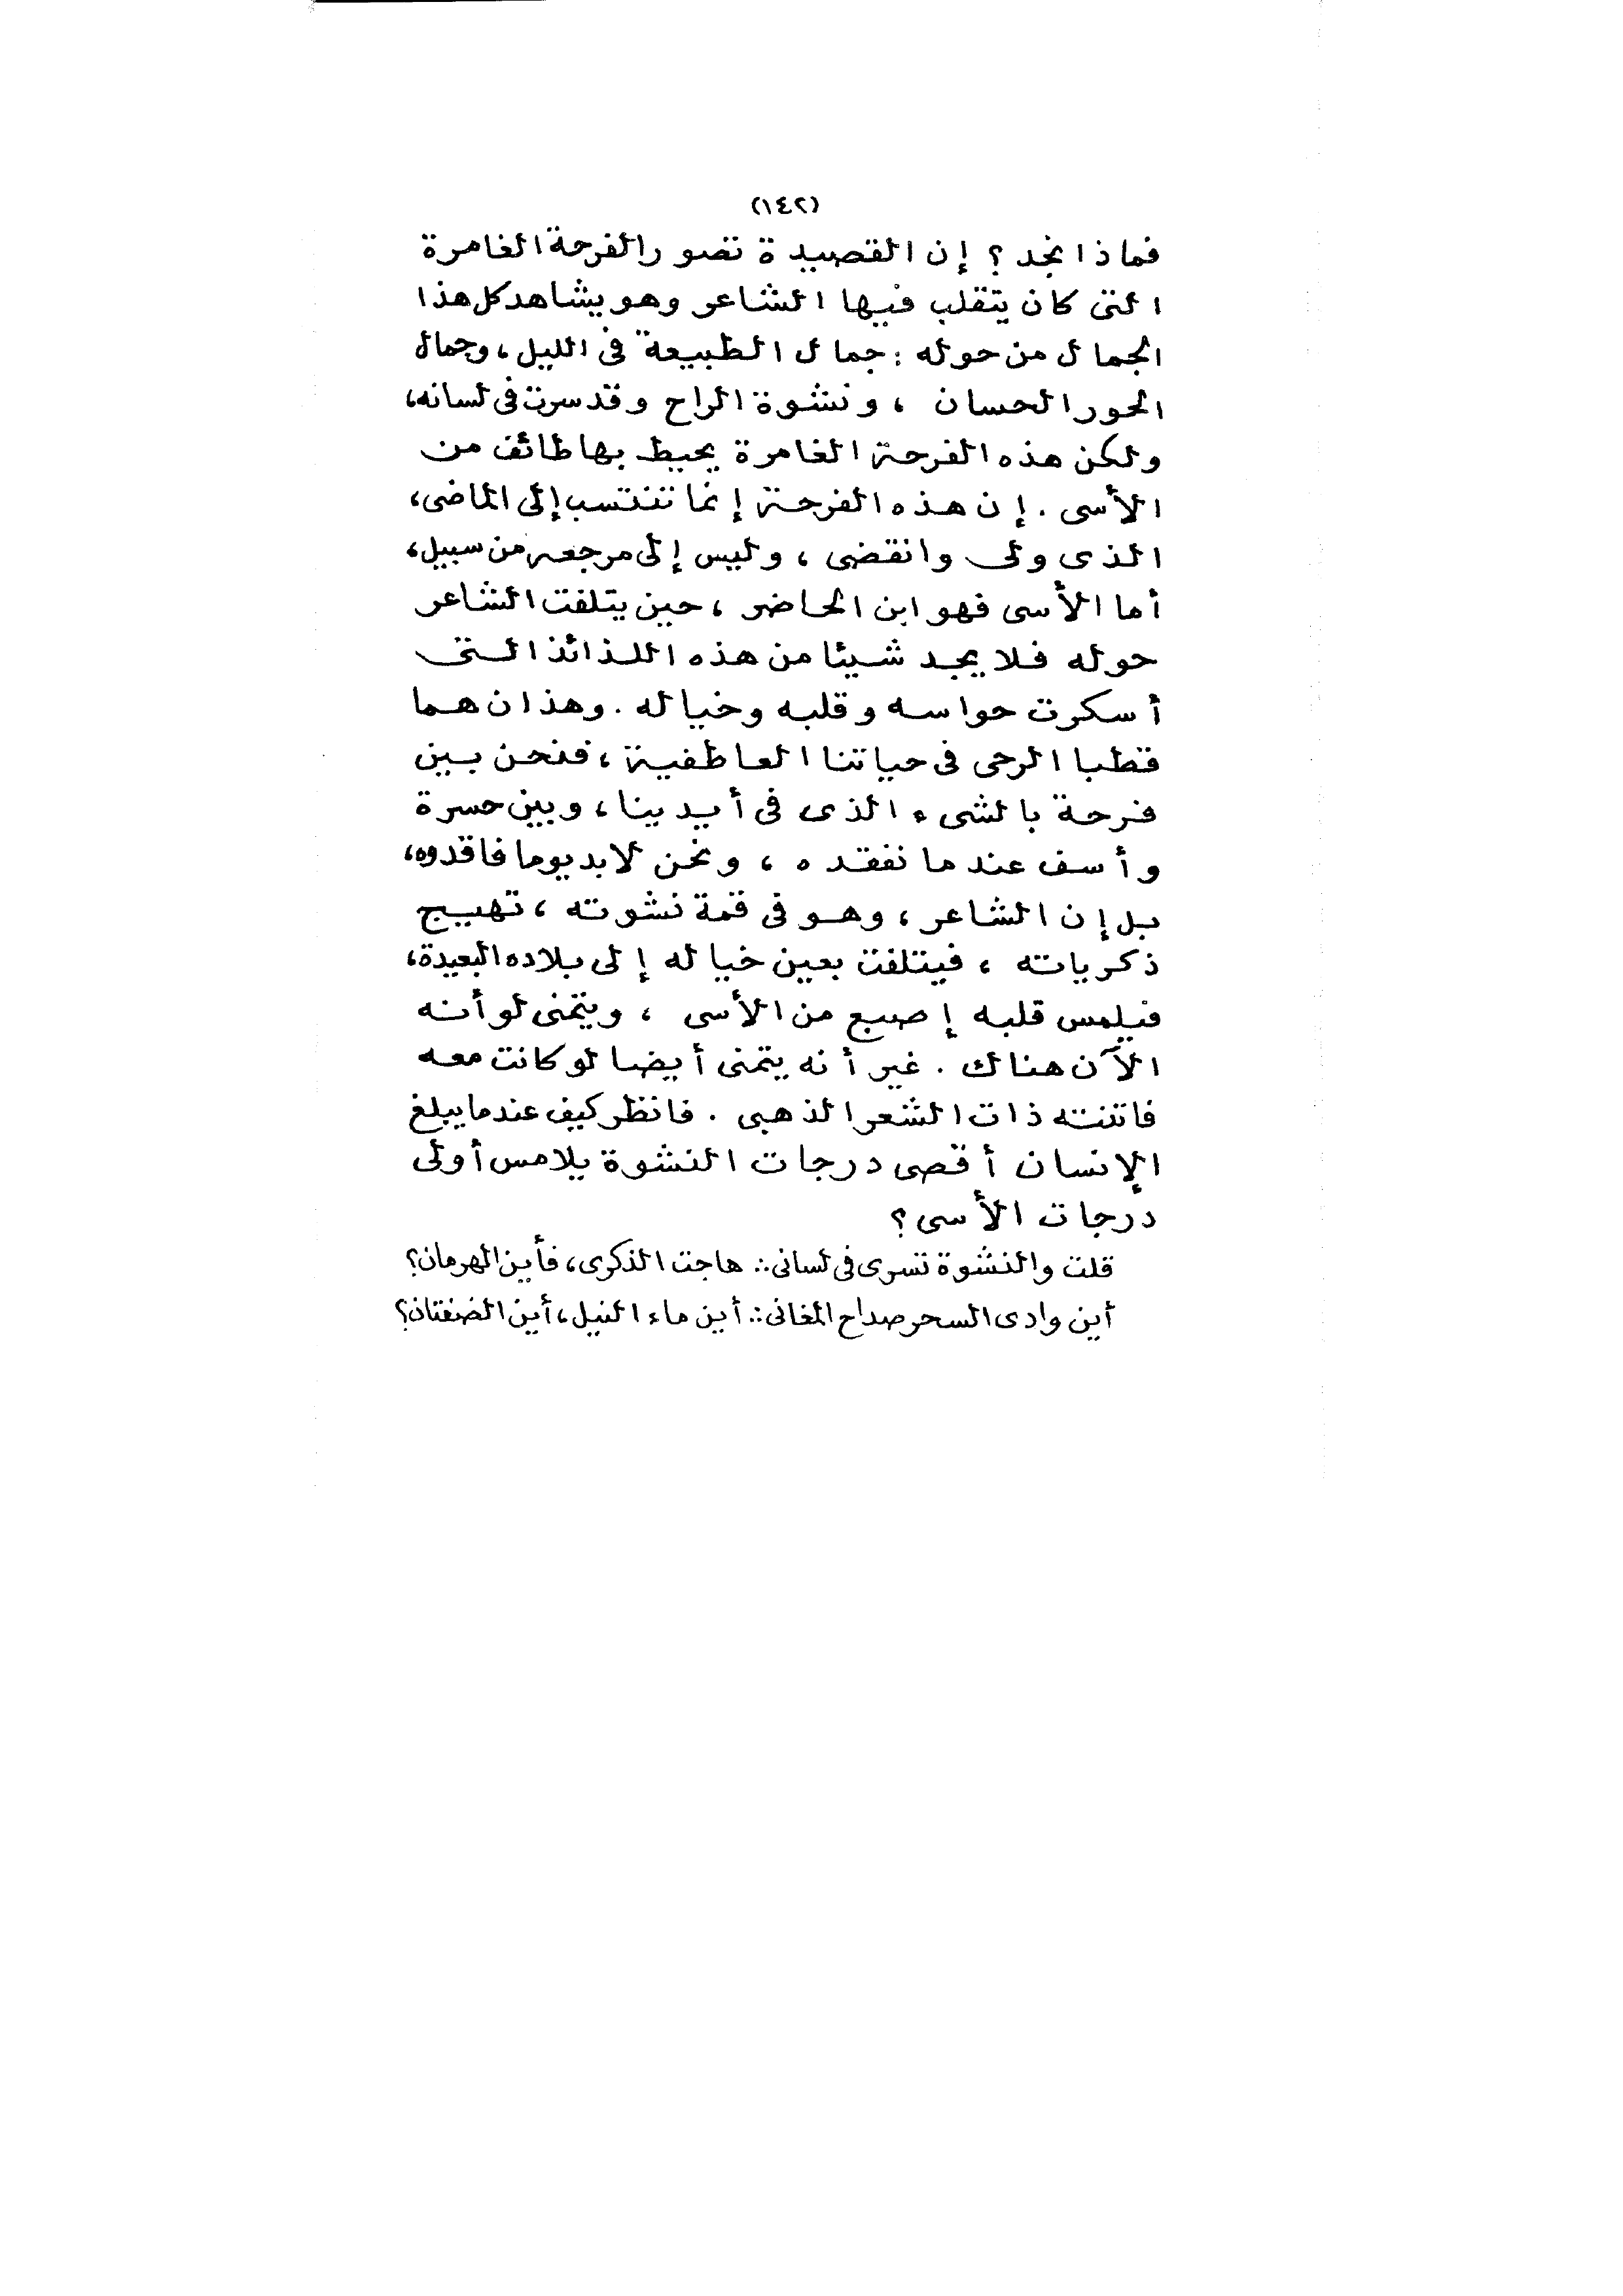 (١٤٢)
فماذا نجد ؟ إن القصيدة تصور الفرحة الغامرة
التى كان يتقلب فيها الشاعر وهو يشاهد كل هذا
الجمال من حوله : جمال الطبيعة فى الليل ، وجمال
الحور الحسان ، ونشوة الراح وقد سرت فى لسانه ،
ولكن هذه الفرحة الغامرة يحيط بها طائف من
الأسى . إن هذه الفرحة إنما تنتسب إلى الماضى ،
الذى ولى وانقضى ، وليس إلى مرجعه من سبيل ،
أما الأسى فهو ابن الحاضر ، حين يتلفت الشاعر
حوله فلا يجد شيئا من هذه اللذائذ التى
أسكرت حواسه وقلبه وخياله . وهذان هما
قطبا الرحى فى حياتنا العاطفية ، فنحن بين
فرحة بالشىء الذى فى أيدينا ، وبين حسرة
وأسف عندما نفقده ، ونحن لابد يوما فاقدوه ،
بل إن الشاعر ، وهو فى قمة نشوته ، تهيج
ذكرياته ، فيتلفت بعين خياله إلى بلاده البعيدة ،
فيلمس قلبه إصبع من الأسى ، ويتمنى لو أنه
الآن هناك . غير أنه يتمنى أيضا لو كانت معه
فاتنته ذات الشعر الذهبى . فانظر كيف عندما يبلغ
الإنسان أقصى درجات النشوة يلامس أولى
درجات الأسى ؟
قلت والنشوة تسرى فى لسانى ∴ هاجت الذكرى ، فأين الهرمان ؟
أين وادى السحر صداح المغانى ∴ أين ماء النيل ، أين الضفتان ؟